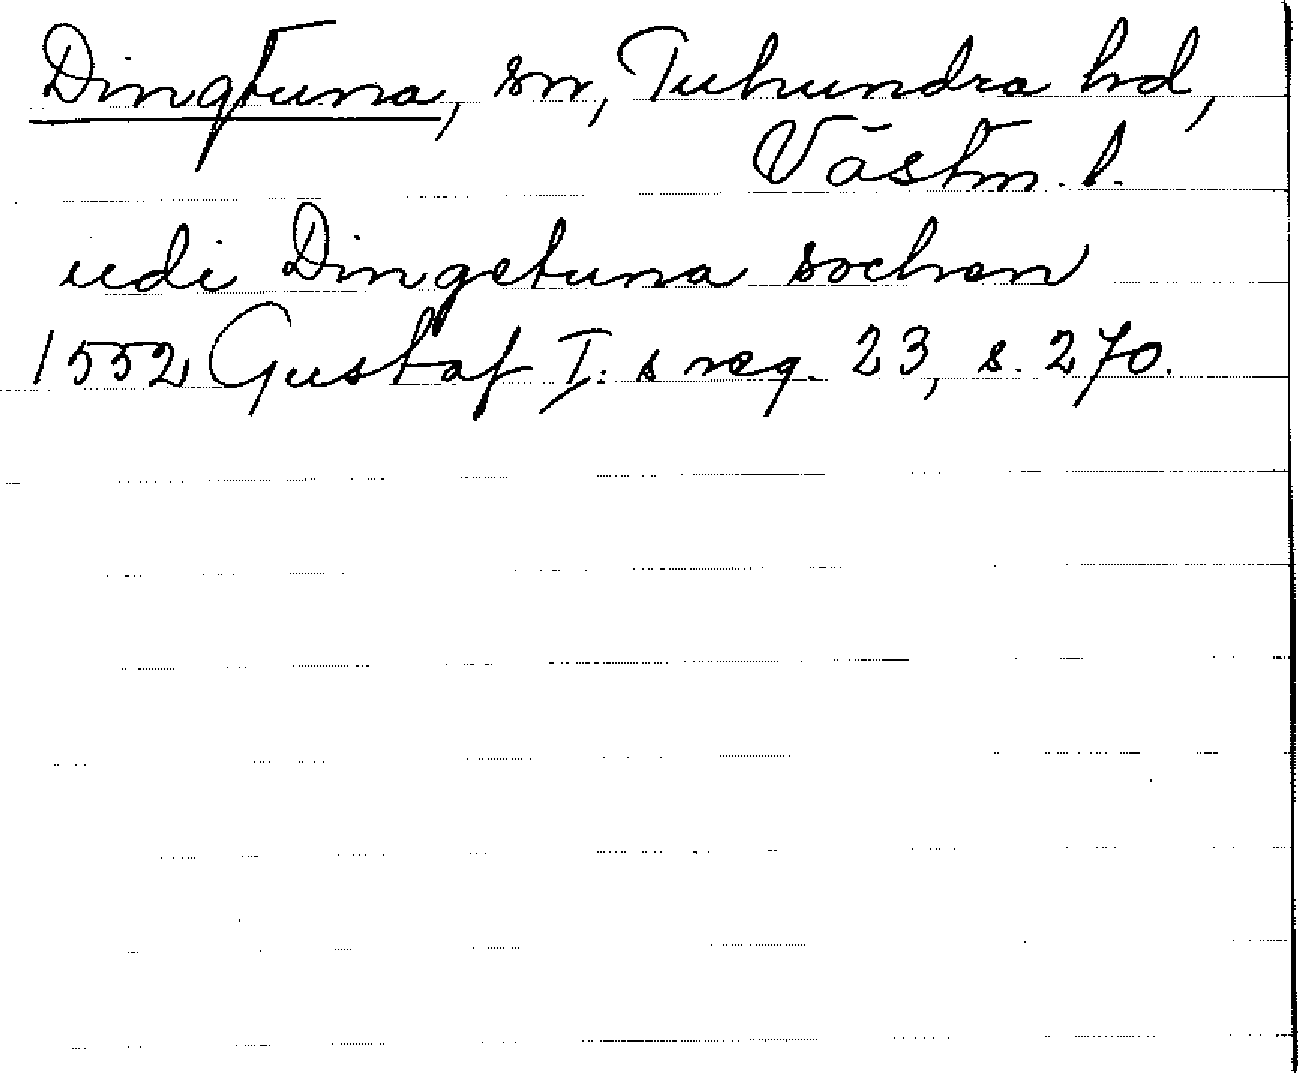 Dingtuna, sn, Tuhundra hd,
Västm. l.
udi Dingetuna sochan
1552 Gustaf I: s reg. 23, s. 270.